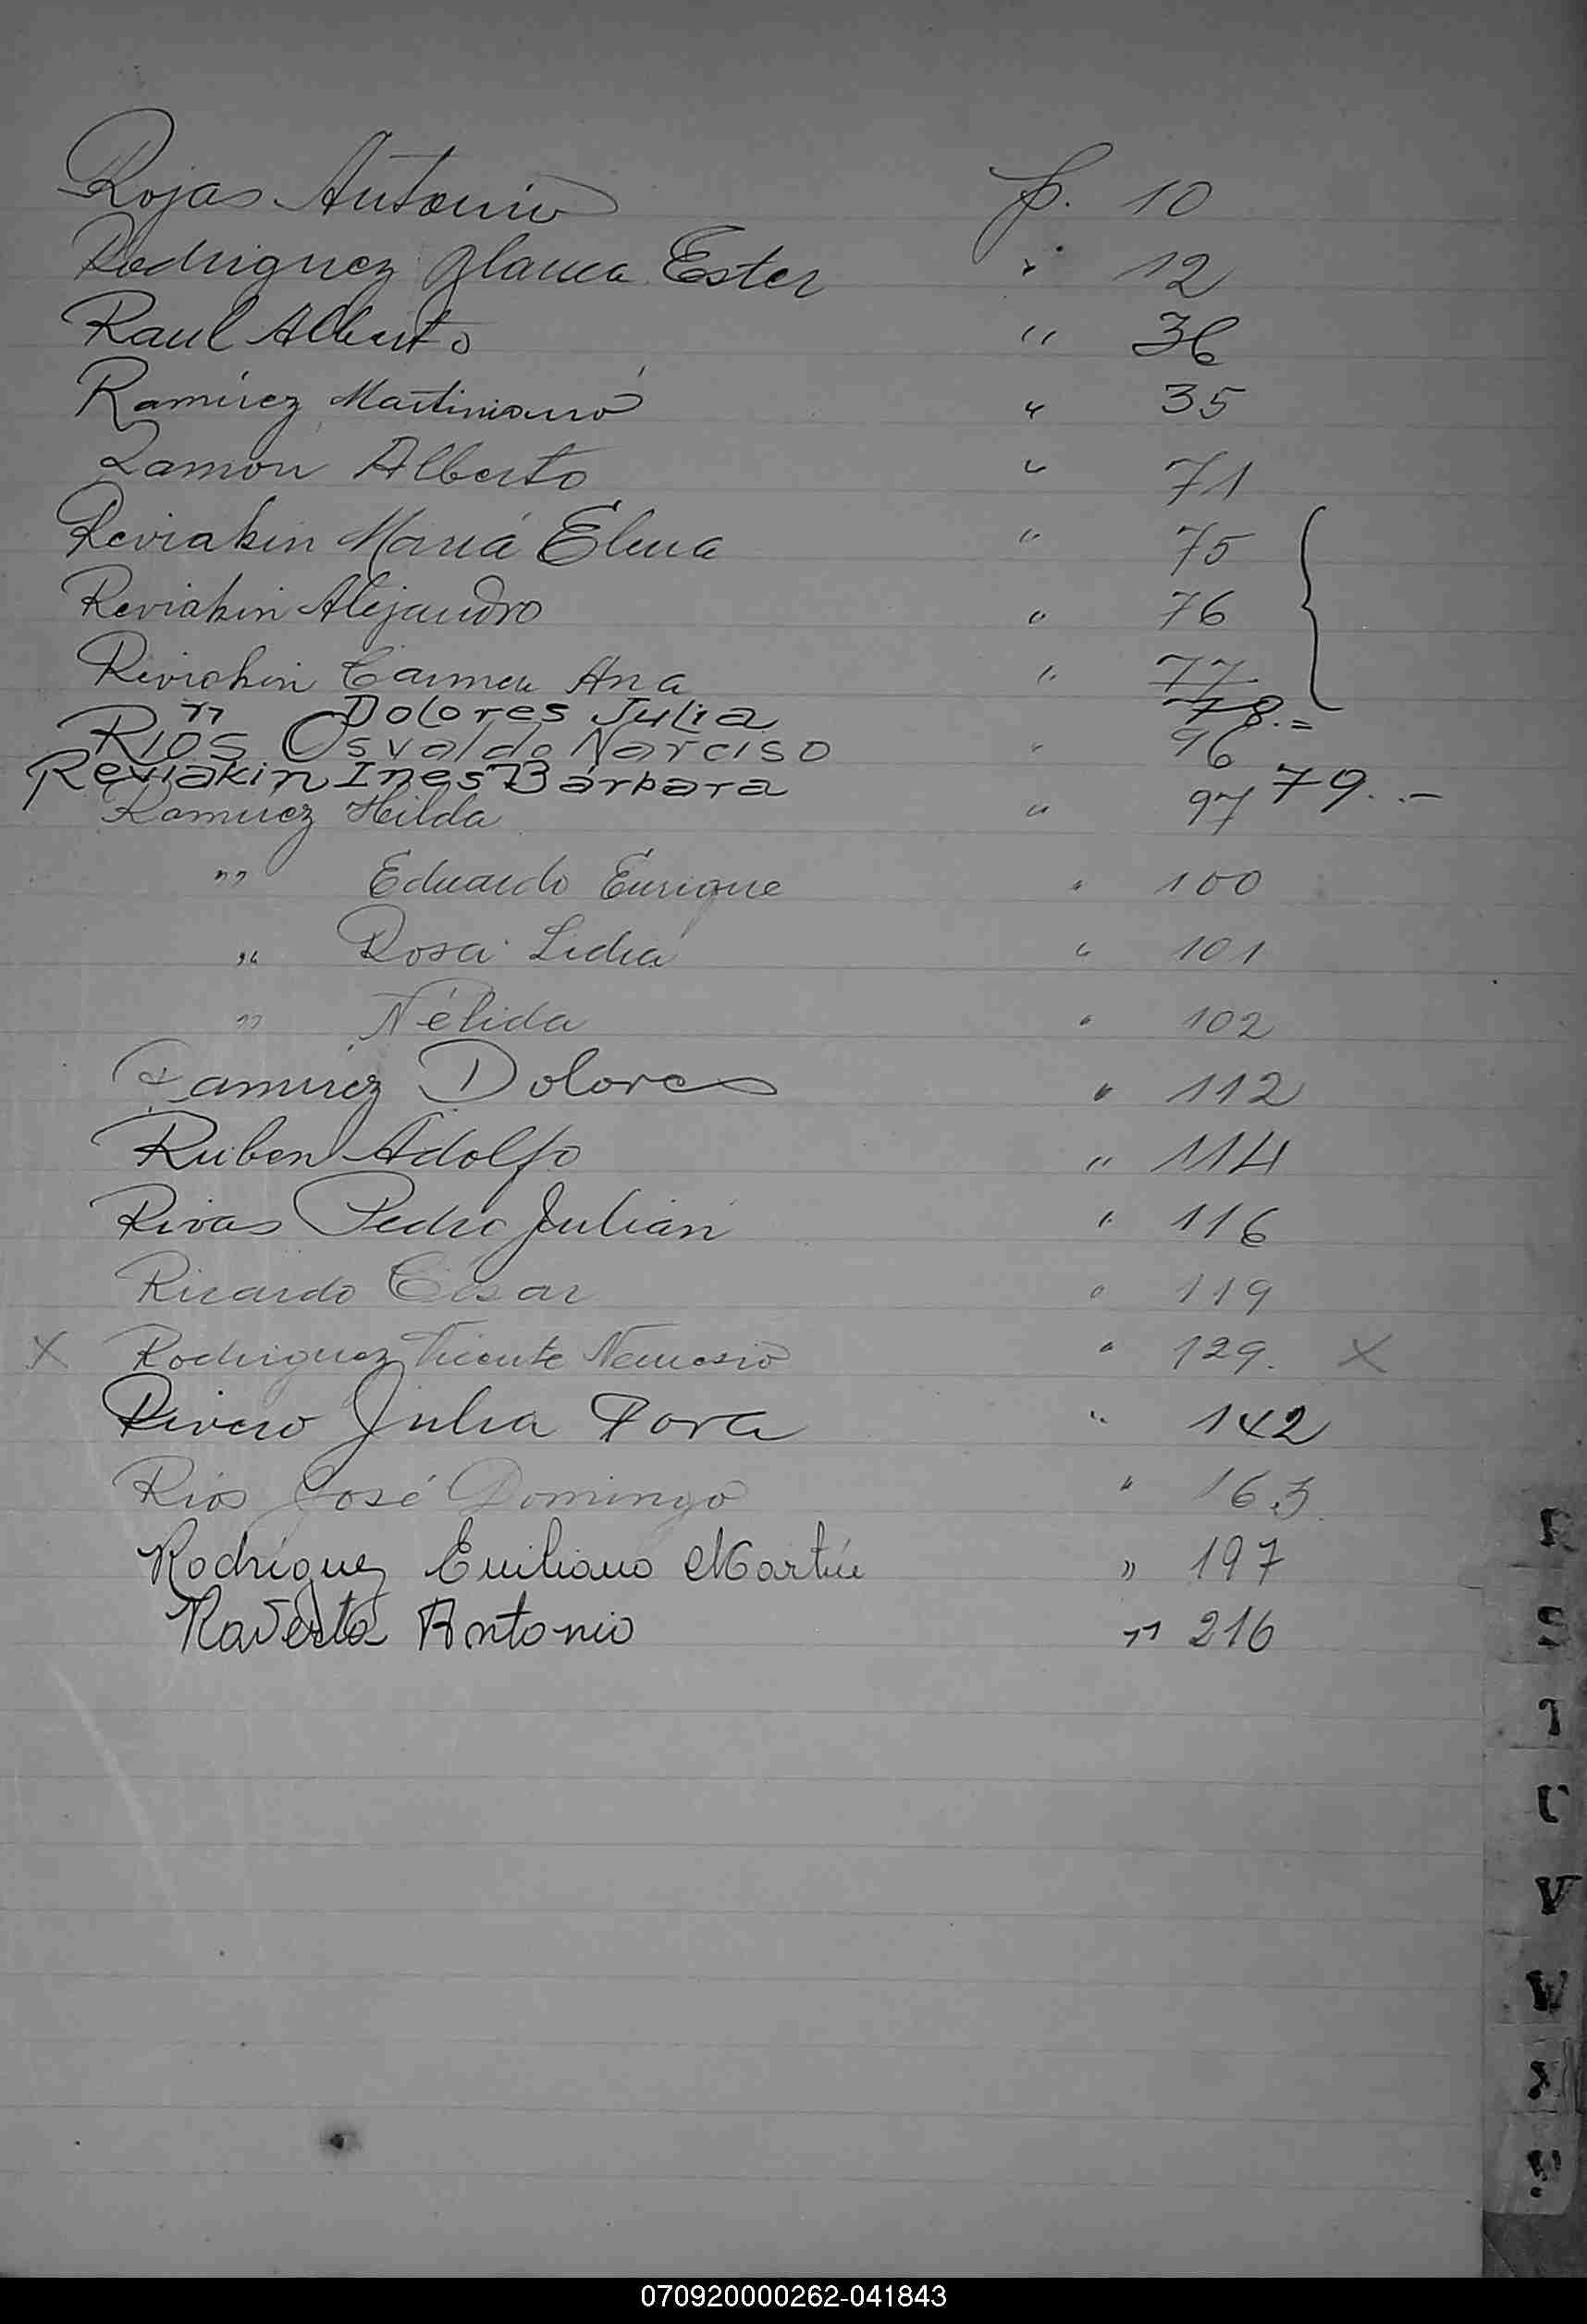 Rojas Antonio p. 10
Rodriguez Glauca Ester " 12
Raul Alberto " 36
Ramírez Martiniano " 35
Ramon Alberto " 71
Reviakin María Elena " 75
Reviakin Alejandro " 76
Reviakin Carmen Ana " 77
" Dolores Julia 78.=
Ríos Osvaldo Narciso " 96
Reviakin Ines Bárbara 79.-
Ramirez Hilda " 97
" Eduardo Enrique " 100
" Rosa Lidia " 101
" Nélida " 102
Ramírez Dolores " 112
Ruben Adolfo " 114
Rivas Pedro Julián " 116
Ricardo César " 119
X Rodriguez Vicente Nemesio " 129. X
Rivero Julia Dora " 142
Ríos José Domingo " 163
Rodríguez Emiliano Martín " 197
Raverta Antonio " 216
R
S
T
U
V
W
X
070920000262-041843